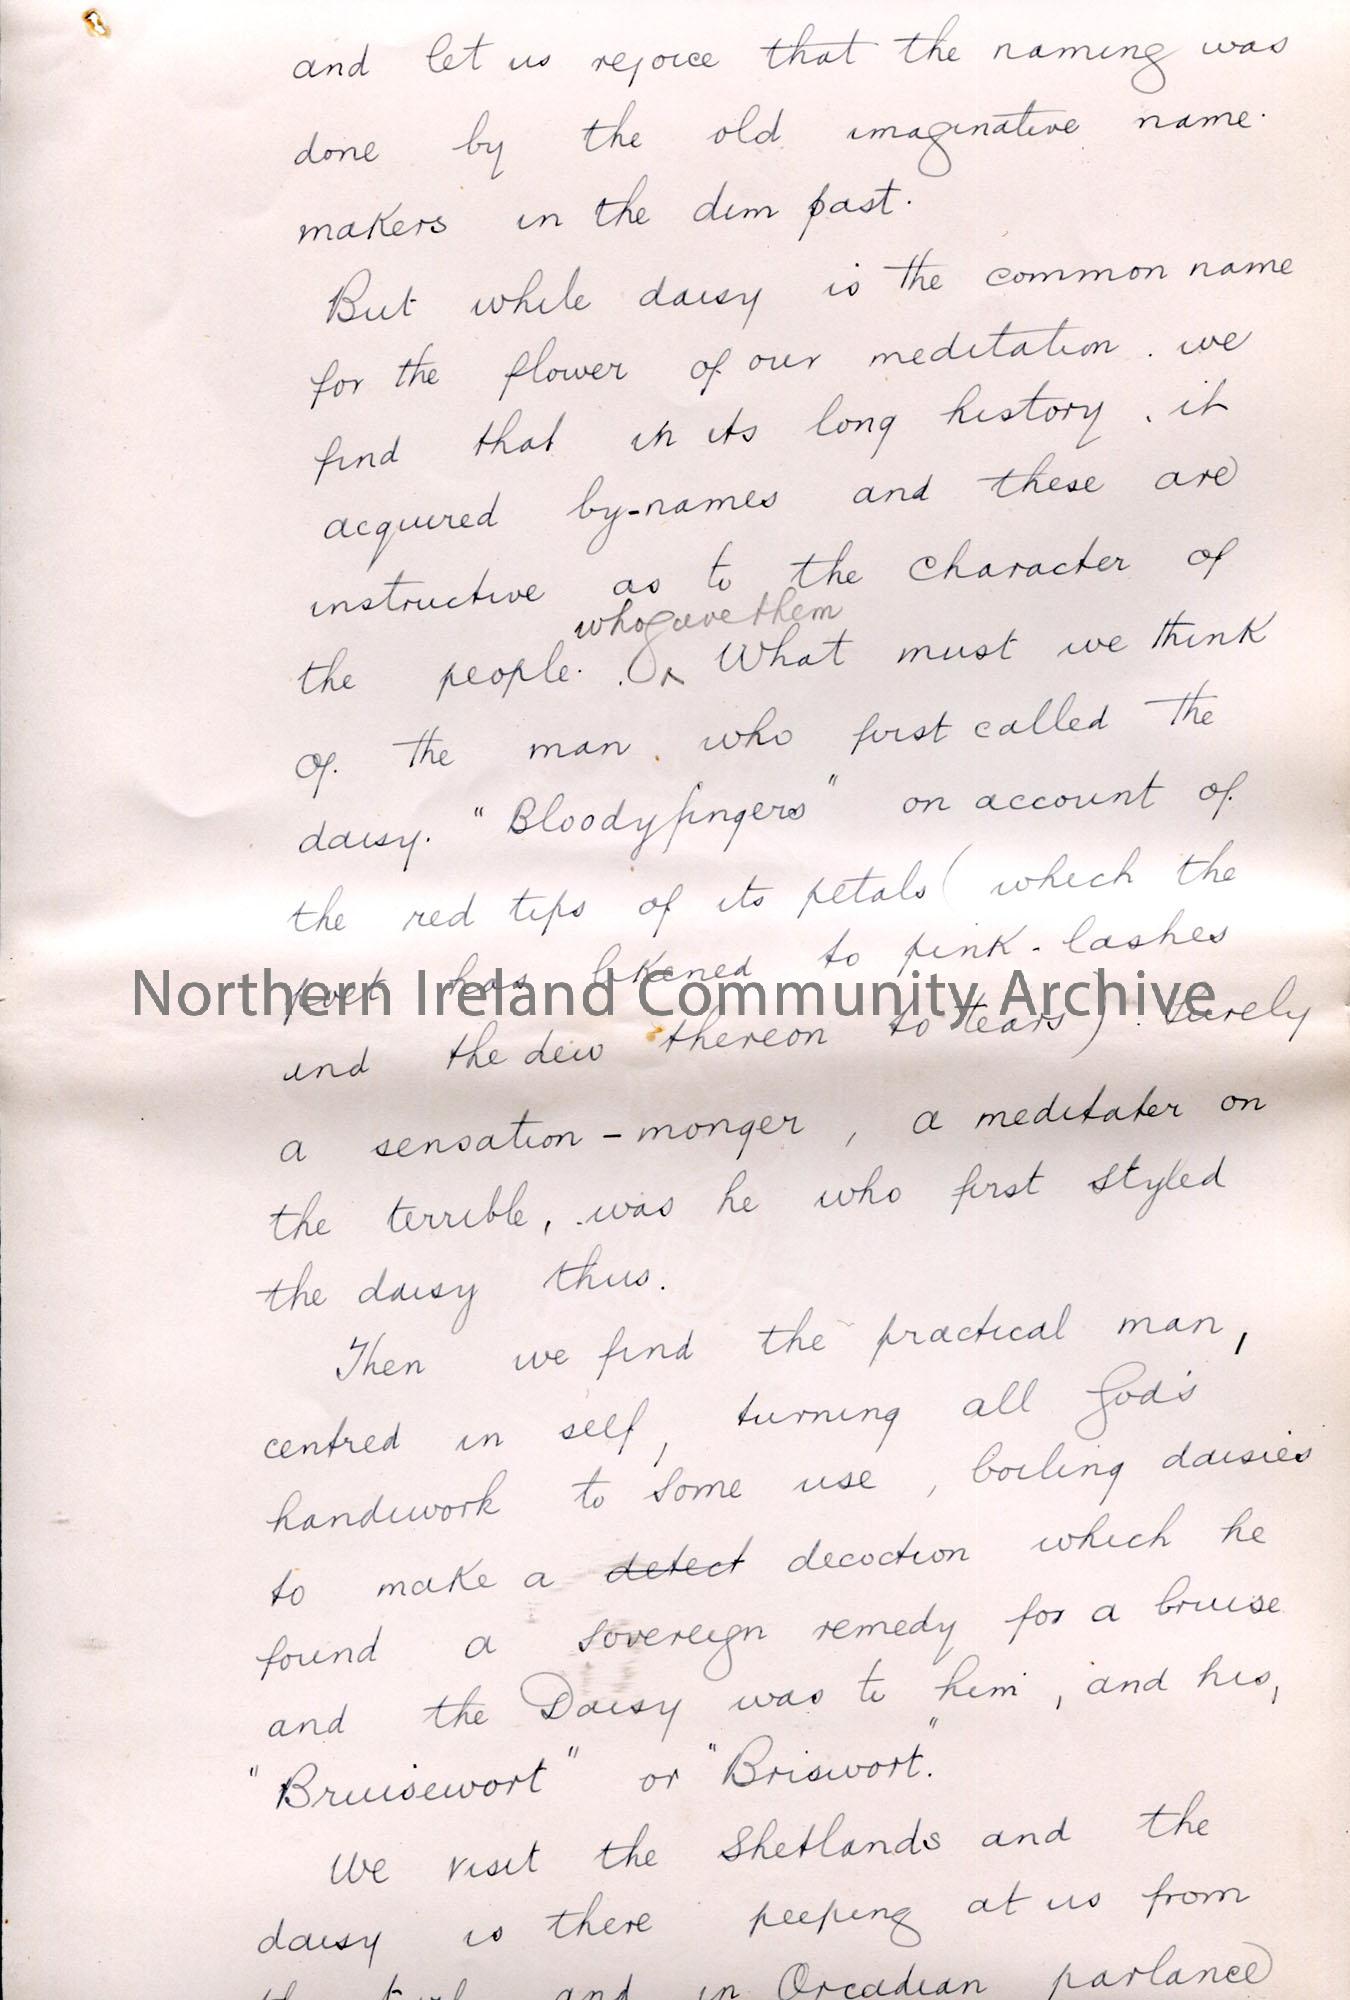 and let us rejoice that the naming was
done by the old imaginative name-
makers in the dim past.
But while daisy is the common name
for the flower of our meditation, we
find that in its long history, it
acquired by-names and these are
instructive as to the character of
who gave them
the people. What must we think
of the man who first called the
daisy. "Bloodyfingers" on account of
the red tips of its petals (which the
poet has likened to pink-lashes
Northern Ireland Community Archive
and the dew thereon to tears). Surely
a sensation-monger, a meditater on
the terrible, was he who first styled
the daisy thus.
Then we find the practical man,
centred in self, turning all God's
handiwork to some use, boiling daisies
to make a detect decoction which he
found a sovereign remedy for a bruise
and the Daisy was to him, and his,
"Bruisewort" or "Briswort."
We visit the Shetlands and the
daisy is there peeping at us from
and in Orcadian parlance